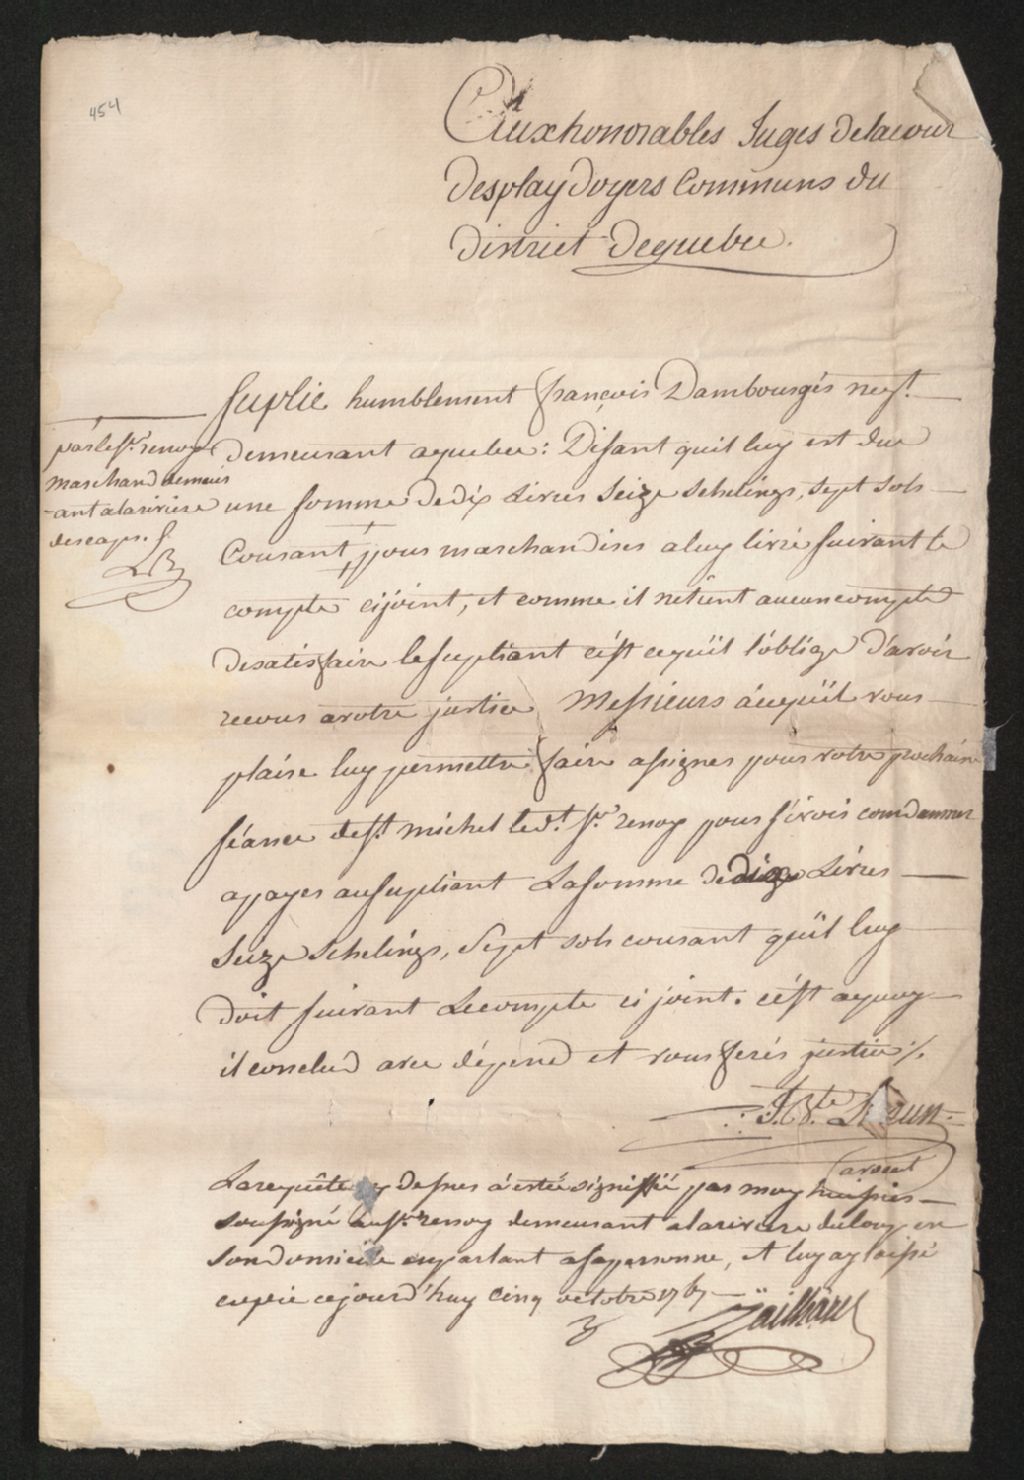 454
Aux honorables Juges de la cour
Desplaydoyers Communs du
District de quebec.
Suplie humblement françois Dambourgès neg.t
demeurant a quebec: Disant quil luy est due
une somme de dix Livres Seize Schelings, sept sols
Courant, pour marchandises a luy livré suivant le
compte cijoint, et comme il nétient aucun compte
desatisfaire lesupliant c'est cequ'il l'oblige d'avoir
recours a votre justice Messieurs àcequ'il vous
plaise luy permettre faire assigner pour votre prochaine
séance de st. michel led.t Sr. renoy pour s'évoir condamner
apayer ausupliant La somme de dix Livres
Seize Schelings, Sept sols courant qu'il luy
doit suivant Lecompte ci joint. c'est aquoy
il conclud avec dépend et vous ferés justice ⁒
par le Sr. renoy
Marchand demeur
-ant ala riviere
des caps. f.
LB
J. Bte. LeBrun
avocat
La requête cy dessus a estée signiffié par moy huissier
soussigné au Sr. renoy demeurant ala riviere du loup en
son domicile enparlant asapersonne, et luy ay laissé
copie cejourd'huy cinq octobre 1767